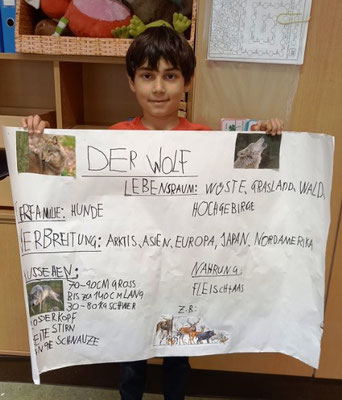 DER WOLF
LEBENSRAUM: WÜSTE, GRASLAND, WALD,
HOCHGEBIRGE
ERFAMILIE: HUNDE
ERBREITUNG: ARKTIS, ASIEN, EUROPA, JAPAN, NORDAMERIKA
USSEHEN:
70-90CM GROSS
BIS ZU 140CM LANG
30-80KG SCHWER
OSSER KOPF
EITE STIRN
NGE SCHNAUZE
NAHRUNG:
FLEISCH, AAS
Z.B: